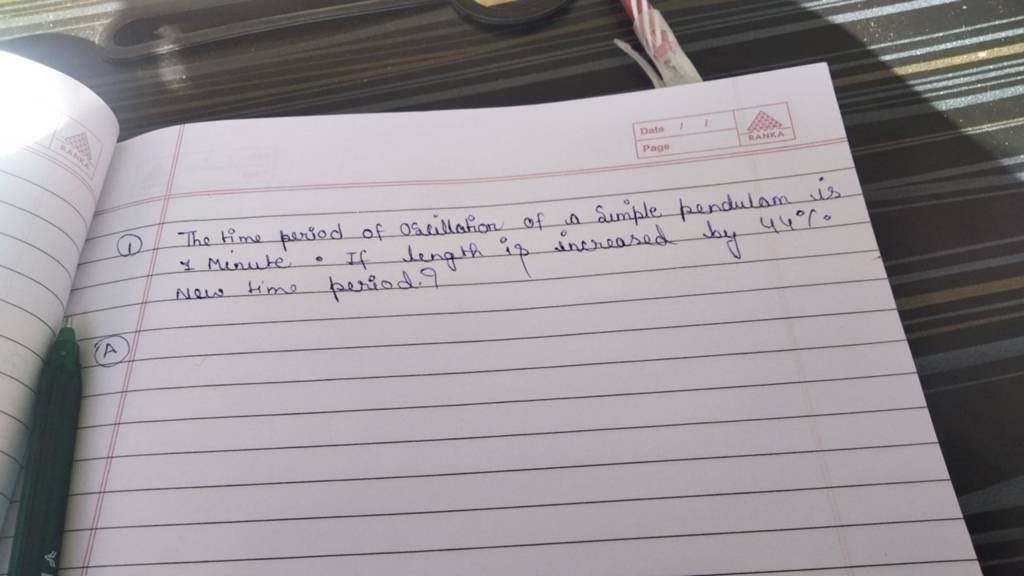 RANKA
Date / /
Page
RANKA
① The time period of Oscillation of a Simple pendulam is
1 Minute . If length is increased by 44%
New time period.?
Ⓐ